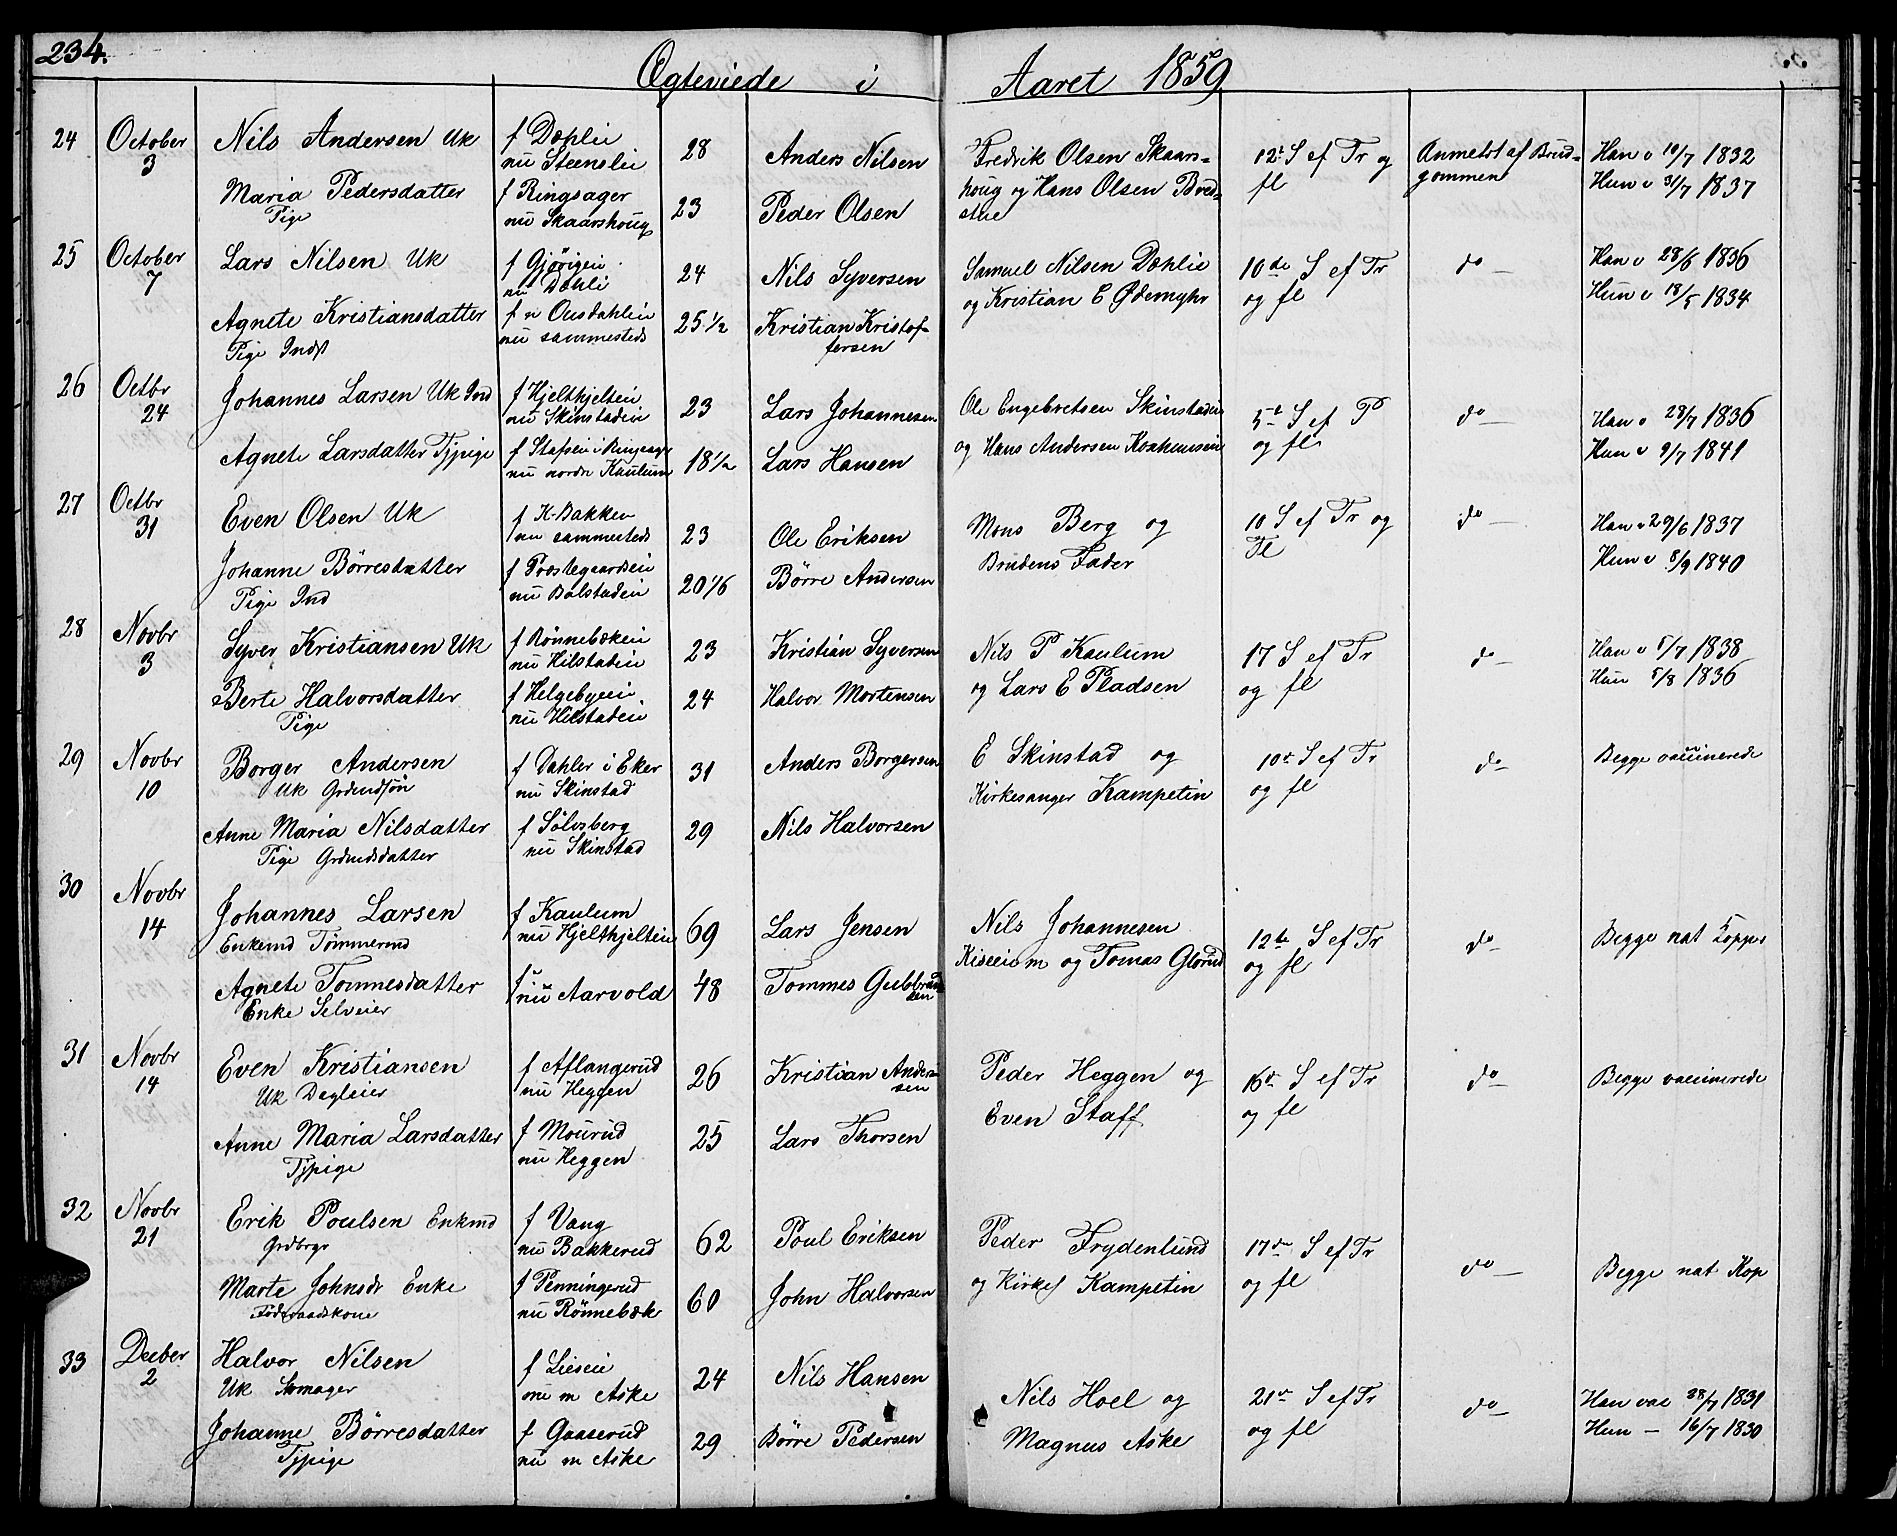 234.
Ægteviede i Aaret 1859
24 October 3 Nils Andersen Uk f Dæhlie nu Steenslie 28 Anders Nilsen Fredrik Olsen Skaars- 12t S ef Tr og Anmeldt af Brud- Han v 10/7 1832
Maria Pedersdatter f Ringsager 23 Peder Olsen houg og Hans Olsen Bred- fl gommen Hun v 31/7 1837
Pige nu Skaarshoug stue
25 October 7 Lars Nilsen Uk f Gjøvigeie nu Dæhli 24 Nils Syversen Samuel Nilsen Dæhlie 10de S ef Tr do Han v 28/6 1836
Agnete Kristiansdatter f n Ousdahleie 25 1/2 Kristian Kristof- og Kristian E Ødemyhr og fl Hun v 18/5 1834
Pige Indst nu sammesteds fersen
26 Octbr 24 Johannes Larsen Uk Ind f Hjelthjelteie nu Skinstadeie 23 Lars Johannesen Ole Engebretsen Skinstadeie 5t S ef P do Han v 28/7 1836
Agnete Larsdatter Tjpige f Stafseie i Ringsager nu nordre Kaulum 18 1/2 Lars Hansen og Hans Andersen og fl Hun v 9/7 1841
27 Octbr 31 Even Olsen Uk f K-Bakken nu sammesteds 23 Ole Eriksen Mons Berg og 10 S ef Tr og do Han v 29/6 1837
Johanne Börresdatter f Prostegaardseie 20 1/6 Börre Andersen Brudens Fader Fl Hun v 8/9 1840
Pige Ind nu Bolstadeie
28 Novbr 3 Syver Kristiansen Uk f Rönnebækeie nu Hilstadeie 23 Kristian Syversen Nils P Kaulum 17 S ef Tr do Han v 5/7 1838
Berte Halvorsdatter f Helgebyeie 24 Halvor Mortensen og Lars E Pladsen og fl Hun 5/8 1836
Pige nu Hilstadeie
29 Novbr 10 Borger Andersen f Dahler i Eker 31 Anders Borgersen E Skinstad og 10de S ef Tr do Begge vaccinerede
Uk Grdmdsön nu Skinstad Kirkesanger Kampetin og fl
Anne Maria Nilsdatter f Sölvsberg 29 Nils Halvorsen
Pige Grdmdsdatter nu Skinstad
30 Novbr 14 Johannes Larsen f Kaulum 69 Lars Jensen Nils Johannesen 12te S ef Tr do Begge nat Kopper
Enkemd Tömmermd nu Hjelthjelteie Kiseeie m og Tomas Glorud og fl
Agnete Tommesdatter f " 48 Tommes Gulbrandsen
Enke Selveier nu Aarvold
31 Novbr 14 Even Kristiansen f Aflangerud 26 Kristian Andersen Peder Heggen og 16de S ef Tr do Begge vaccinerede
Uk Degleier nu Heggen Even Staff og fl
Anne Maria Larsdatter f Mourud 25 Lars Thorsen
Tjpige nu Heggen
32 Novbr 21 Erik Poulsen Enkmd f Vang 62 Poul Eriksen Peder Frydenlund 17de S ef Tr do Begge nat Kop
Grdbrgr nu Bakkerud og Kirkes Kampetin og fl
Marte Johnsdr Enke f Penningerud 60 John Halvorsen
Föderaadskone nu Rönnebæk
33 Decber 2 Halvor Nilsen f Lieseie 24 Nils Hansen Nils Hoel og 21de S ef Tr do Han vac 28/7 1831
Uk Skomager nu m Aske Magnus Aske og fl Hun — 16/7 1830
Johanne Börresdatter f Gaaserud 29 Börre Pedersen
Tjpige nu m Aske